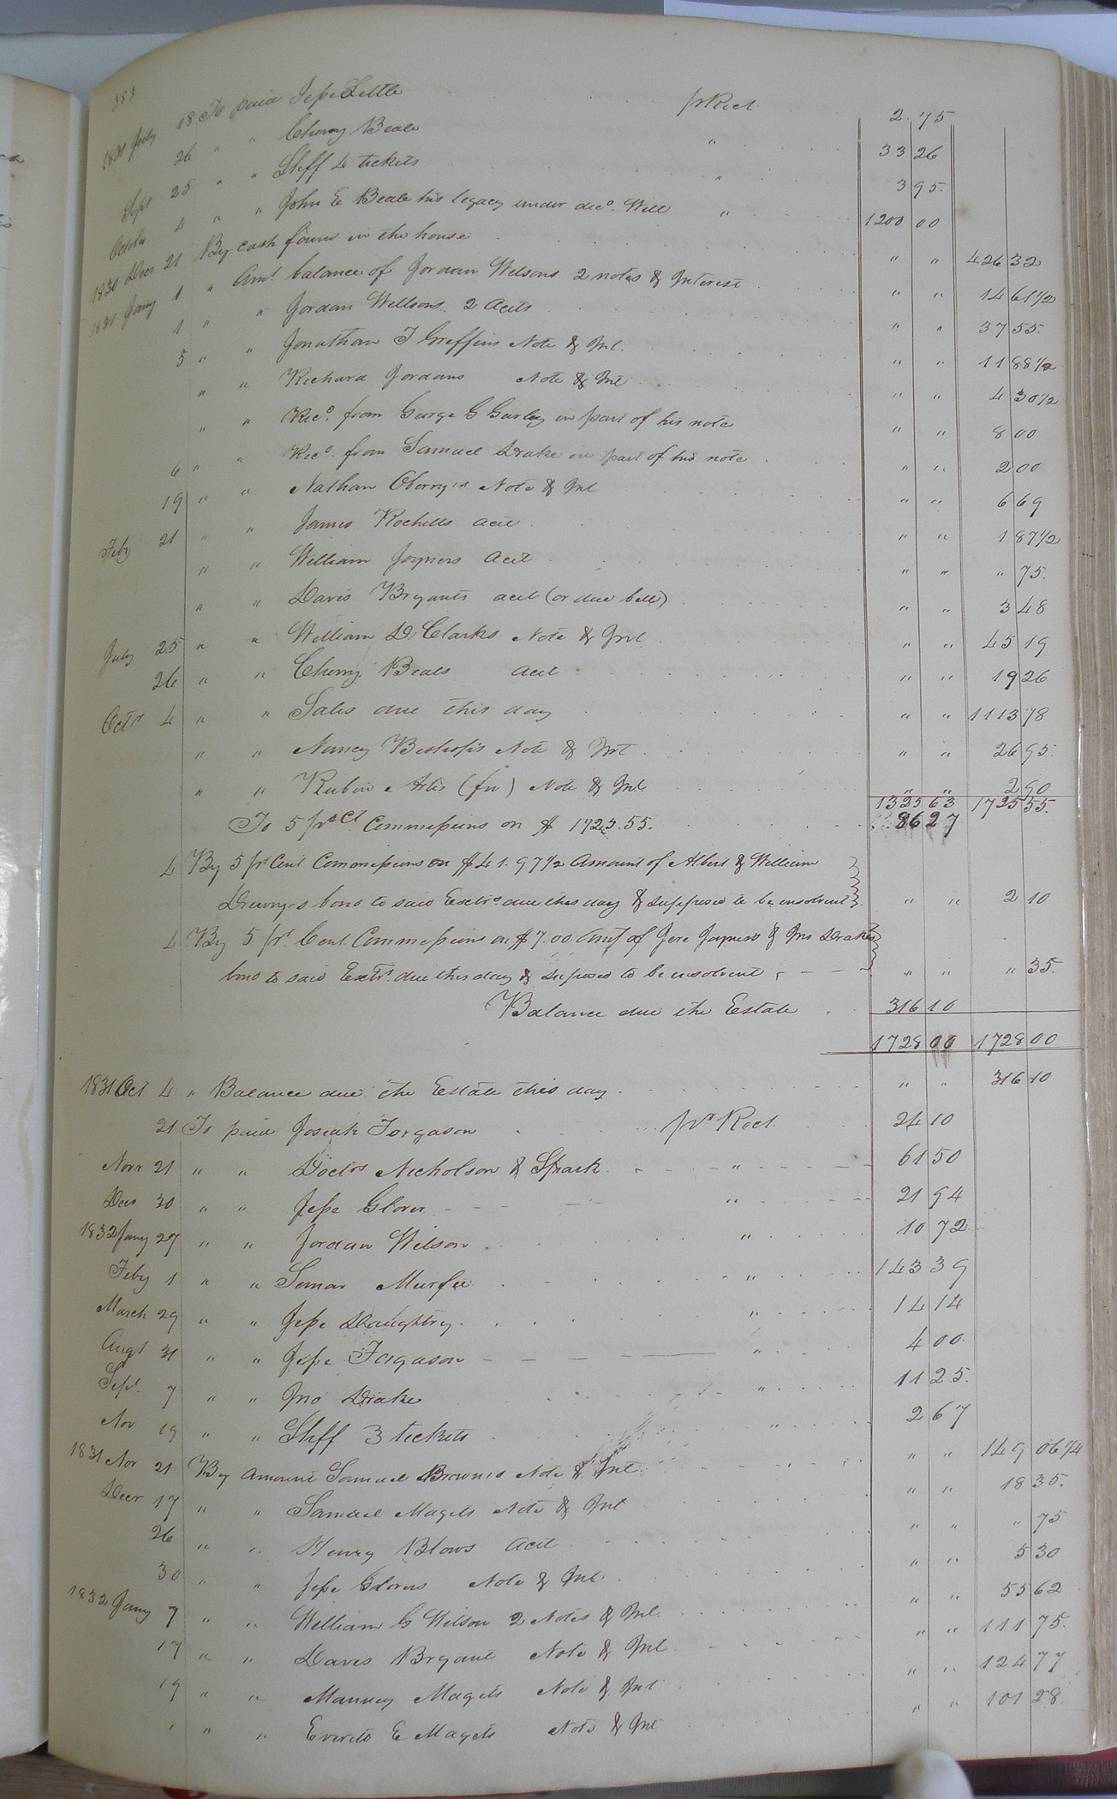 383
1831 July 18 To paid Jesse Little pr Rect 2.75
26 " " Cherry Beale " 33 26
Sept 25 " " Shff 4 tickets " 3 95
October 4 " " John E Beale his legacy under decd. Will " 1200 00
1830 Decr 21 By cash found in the house " " 426 32
1831 Jany 1 " Amt. balance of Jordan Wilsons 2 notes & Interest " " 14 61 1/2
1 " " Jordan Willsons 2 Accts " " 37 55
5 " " Jonathan T Griffins Note & Int. " " 11 88 1/2
" " Richard Jordans Note & Int " " 4 30 1/2
" " Recd. from George G Gurley in part of his note " " 8 00
" Recd. from Samuel Drake in part of his note " " 2 00
6 " " Nathan Oberry's Note & Int " " 6 69
19 " " James Rochells acct " " 1 87 1/2
Feby 21 " " William Joyners Acct " " " 75
" " Davis Bryants acct (or due bill) " " 3 48
" " William D. Clarks Note & Int " " 45 19
July 25 " "
26 " " Cherry Beals acct " " 19 26
Octr 4 " " Sales due this day " " 1113 78
" " Nancy Bishop's Note & Int " " 26 95
" " Rubin Artis (fn) Note & Int " " 2 90
1325 63 1725 55
To 5 pr Ct Commissions on $ 1725.55. 86 27
4 By 5 pr Cent Commissions on $41.97 1/2 Amount of Albert & William
Drewrys bond to said Exetrs due this day & supposed to be insolvent " " 2 10
4 By 5 pr. Cent Commissions on $7.00 Amt of Jere Joyner & Jno Drakes
bond to said Extr. due this day & suposed to be insolvent " " " 35
Balance due the Estate 316 10
1728 00 1728 00
1831 Oct 4 " Balance due the Estate this day " " 316 10
21 To paid Josiah Forgason pr Rect 24 10
Novr 21 " " Doctrs Nicholson & Spark " 61 50
Decr 30 " " Jesse Glover " 21 94
1832 Jany 27 " " Jordan Wilson " 10 72
Feby 1 " " Simon Murfee " 143 39
March 29 " " Jesse Daughtry " 14 14
Augt 31 " " Jesse Forgason " 4 00
Sept. 7 " " Jno Drake " 11 25
Nov 19 " " Shff 3 tickets " 2 67
1831 Nov 21 By amount Samuel Browns Note & Int " " 149 06 1/4
Decr 17 " " Samuel Magets Note & Int " " 18 35
26 " " Henry Blows acct " " " 75
30 " " Jesse Glovers Note & Int " " 5 30
1832 Jany 7 " " William G Wilson 2 Notes & Int " " 55 62
17 " " Davis Bryant Note & Int " " 111 75
19 " " Manney Magets Note & Int " " 124 77
" " " Everett E Magets Note & Int " " 101 28